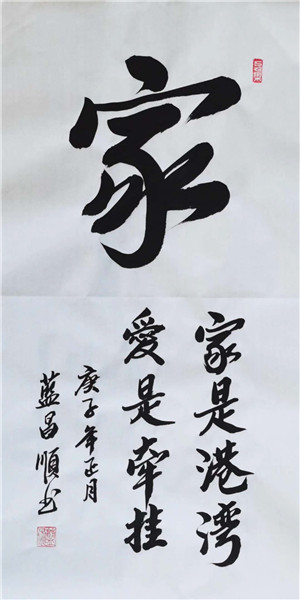 家
家是港湾
愛是牵挂
庚子年正月
蓝昌順书